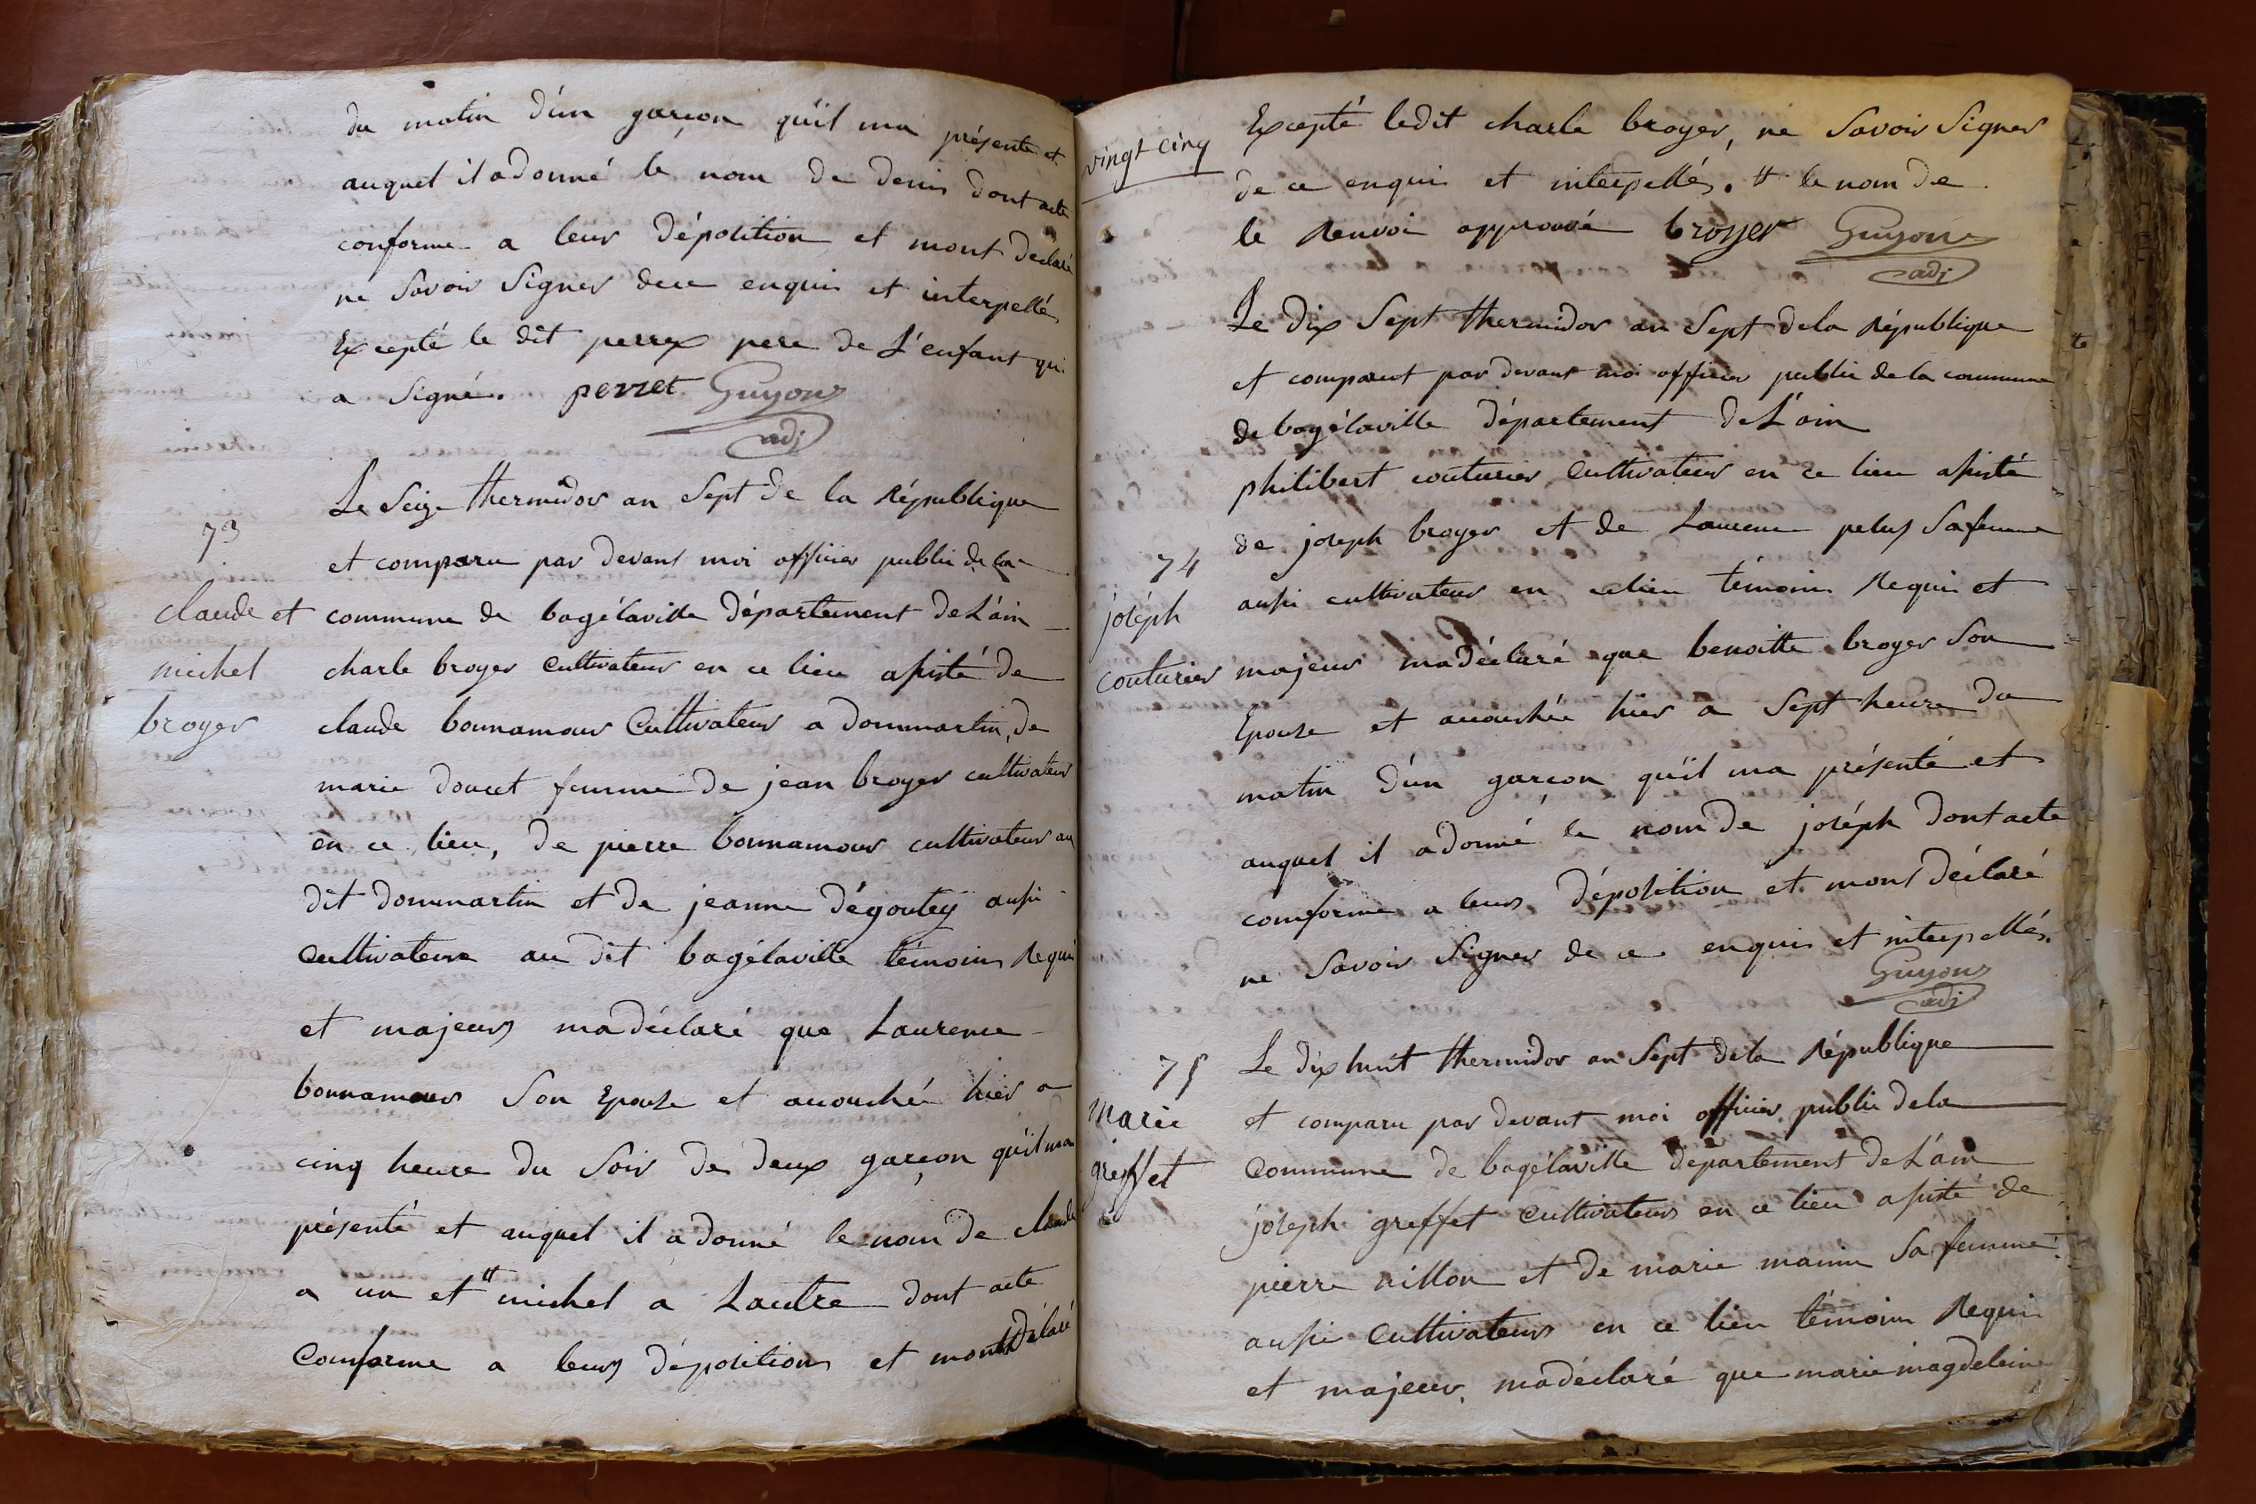 du matin d'un garçon qu'il ma présenté et
auquel il a donné le nom de denis dont acte
conforme a leur déposition et mont declaré
ne Savoir Signer dece enquis et interpellés
Excepté le dit perrex pere de L'enfant qui
a Signé. perret Guyon
adj
73
claude et
michel
broyer
Le Seize thermidor an Sept de la République
et comparu par devant moi officier public de la
commune de bagélaville département de L'ain
charle broyer Cultivateur en ce lieu assisté de
claude bonnamour Cultivateur a dommartin, de
marie doucet femme de jean broyer cultivateur
en ce lieu, de pierre bonnamour cultivateur au
dit dommartin et de jeanne dégoutey aussi
Cultivateur au dit bagélaville témoins Requi
et majeurs ma déclaré que Laurence
bonnamour Son Epouse et accouchée hier a
cinq heure du Soir de deux garçon qu'il ma
présenté et auquel il a donné le nom de claude
a un et # michel a Lautre dont acte
Conforme a leurs dépositions et mont Déclaré
vingt cinq
Excepté ledit charle broyer, ne Savoir Signer
de ce enquis et interpellés. # le nom de
le Renvoi approuvé broyer Guyon
adj
Le dix Sept thermidor an Sept dela République
et comparut par devant moi officier public de la commune
de bagélaville département de L'ain
philibert couturier Cultivateur en ce lieu assisté
de joseph broyer et de Laurence pelus Safemme
74
joséph
couturier
aussi cultivateur en celieu témoins Requis et
majeur ma déclaré que benoitte broyer Son
Epouse et accouchée hier a Sept heure du
matin d'un garçon qu'il ma présenté et
auquel il a donné le nom de joséph dont acte
comforme a leurs déposition et mont déclaré
ne Savoir Signer de ce enquis et interpellés.
Guyon
adj
75
Marie
greffet
Le dix huit thermidor an Sept dela République
et comparu par devant moi officier public dela
Commune de bagélaville département de L'ain
joseph greffet Cultivateur en ce lieu assisté de
pierre nillon et de marie manin Sa femme
aussi Cultivateurs en ce lieu témoins Requi
et majeur, ma déclaré que marie magdeleine